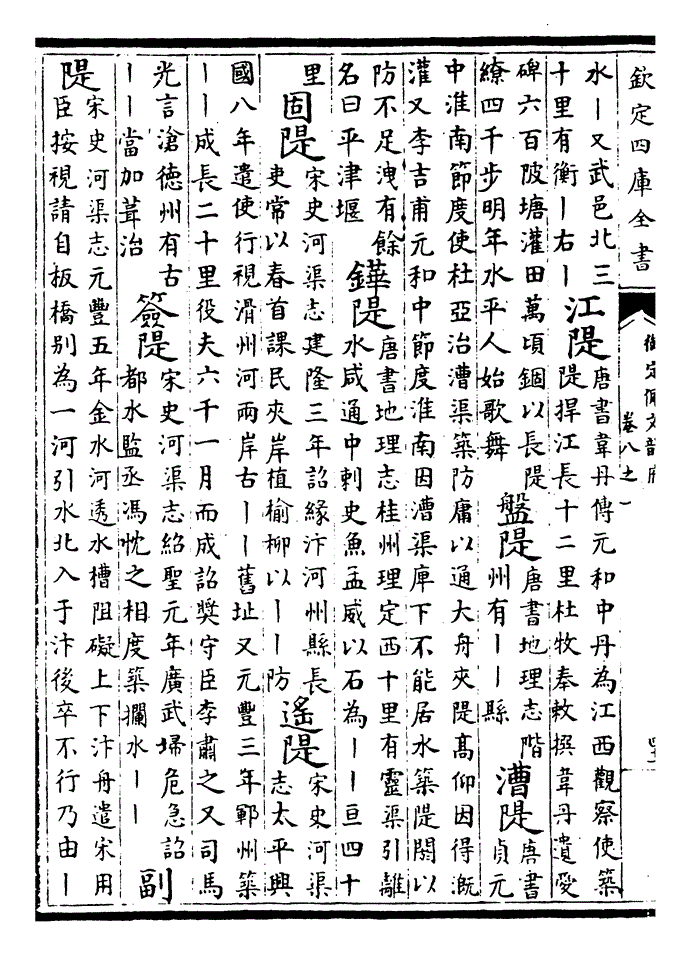 欽定四庫全書
御定佩文韻府
卷八之一
水丨又武邑北三
十里有衡丨右丨
江隄
唐書韋丹傳元和中丹為江西觀察使築
隄捍江長十二里杜牧奉敕撰韋丹遺愛
碑六百陂塘灌田萬頃錮以長隄
繚四千步明年水平人始歌舞
盤隄
唐書地理志階
州有丨丨縣
漕隄
唐書
貞元
中淮南節度使杜亞治漕渠築防庸以通大舟夾隄髙仰因得溉
灌又李吉甫元和中節度淮南因漕渠庳下不能居水築隄閼以
防不足洩有餘
名曰平津堰
鏵隄
唐書地理志桂州理定西十里有靈渠引離
水咸通中刺史魚孟威以石為丨丨亘四十
里
固隄
宋史河渠志建隆三年詔緣汴河州縣長
吏常以春首課民夾岸植榆柳以丨丨防
遙隄
宋史河渠
志太平興
國八年遣使行視滑州河兩岸古丨丨舊址又元豐三年鄆州築
丨丨成長二十里役夫六千一月而成詔奬守臣李肅之又司馬
光言滄德州有古
丨丨當加葺治
簽隄
宋史河渠志紹聖元年廣武埽危急詔
都水監丞馮忱之相度築攔水丨丨
副
隄
宋史河渠志元豐五年金水河透水槽阻礙上下汴舟遣宋用
臣按視請自板橋别為一河引水北入于汴後卒不行乃由丨